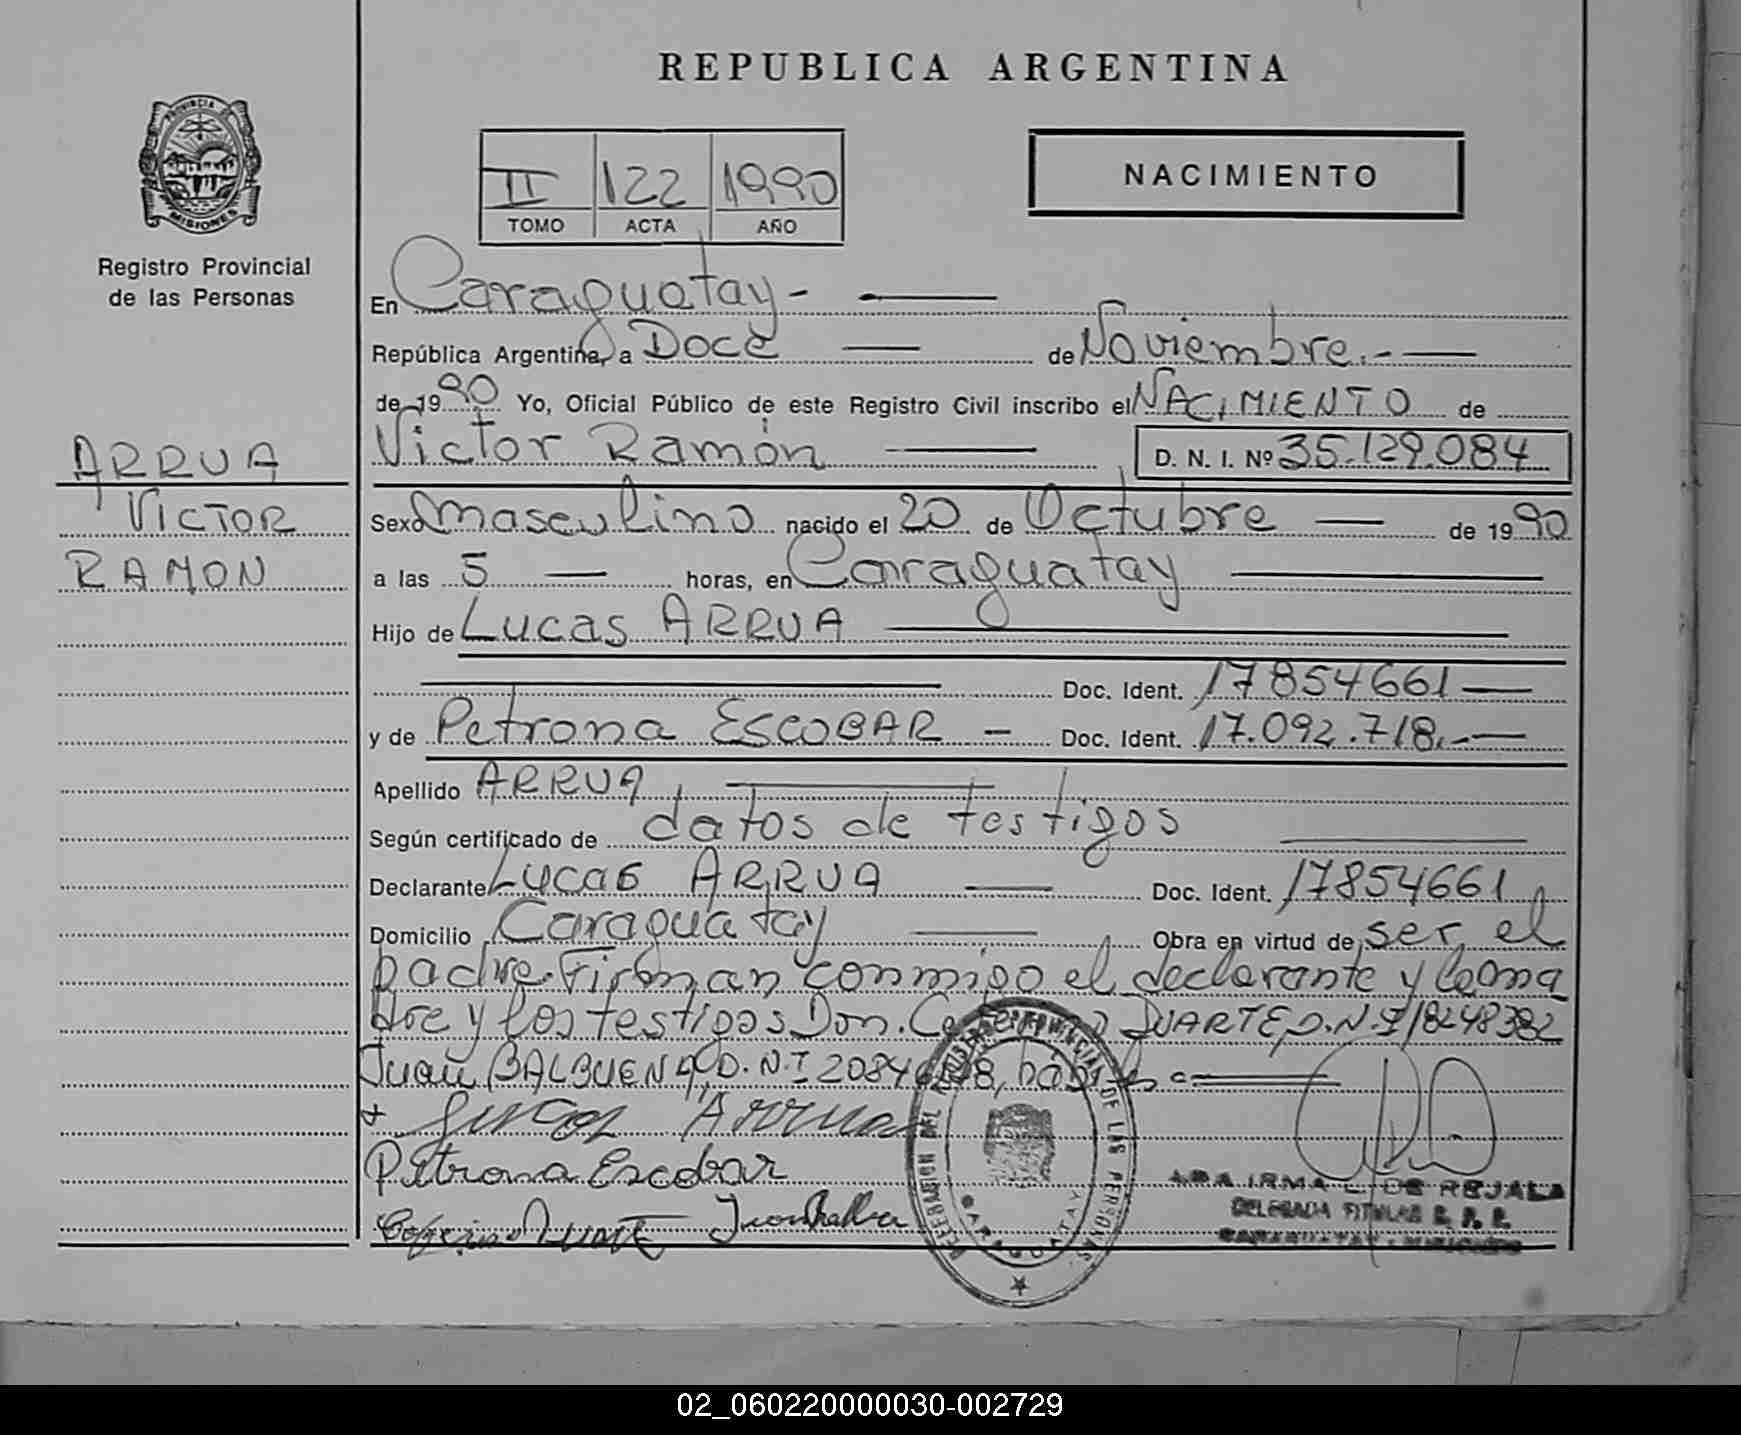 REPUBLICA ARGENTINA
PROVINCIA DE
MISIONES
Registro Provincial
de las Personas
II 122 1990
TOMO ACTA AÑO
NACIMIENTO
ARRUA
VICTOR
RAMON
En Caraguatay -
República Argentina, a Doce de Noviembre.-
de 1990 Yo, Oficial Público de este Registro Civil inscribo el NACIMIENTO de
Victor Ramón D. N. I. Nº 35.129.084
Sexo masculino nacido el 20 de Octubre de 1990
a las 5 horas, en Caraguatay
Hijo de Lucas ARRUA
Doc. Ident. 17854661
y de Petrona ESCOBAR - Doc. Ident. 17.092.718.-
Apellido ARRUA
Según certificado de datos de testigos
Declarante Lucas ARRUA Doc. Ident. 17854661
Domicilio Caraguatay Obra en virtud de ser el
padre. Firman conmigo el declarante y la ma
dre y los testigos Don. DUARTE D.N.I 18248382
Juan BALBUENA D.N.I
Lucas Arrua
Petrona Escobar
Duarte
DELEGACION DEL REGISTRO PROVINCIAL DE LAS PERSONAS
CARAGUATAY
ADA IRMA L. DE REJALA
DELEGADA TITULAR R. P. P.
CARAGUATAY - MISIONES
02_060220000030-002729